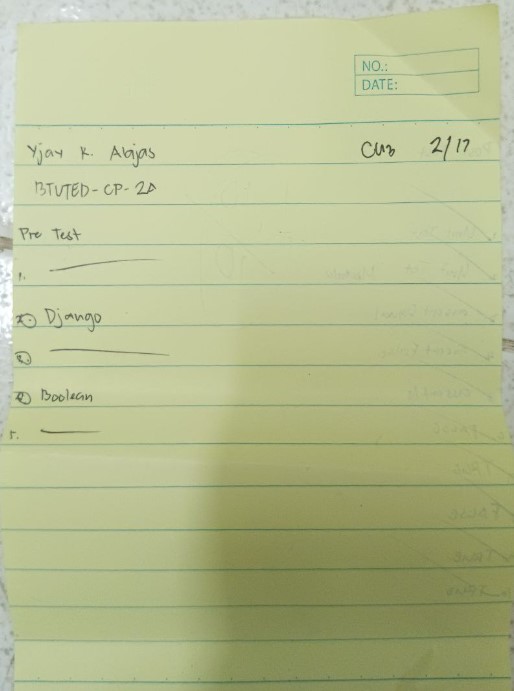 NO.:
DATE:
Yjay K. Abjas 2/17
BTVTED-CP-2A
Pre Test
1.
2. Django
3.
4. Boolean
5.